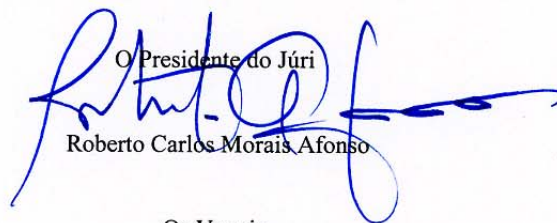 O Presidente do Júri
Roberto Carlos Morais Afonso